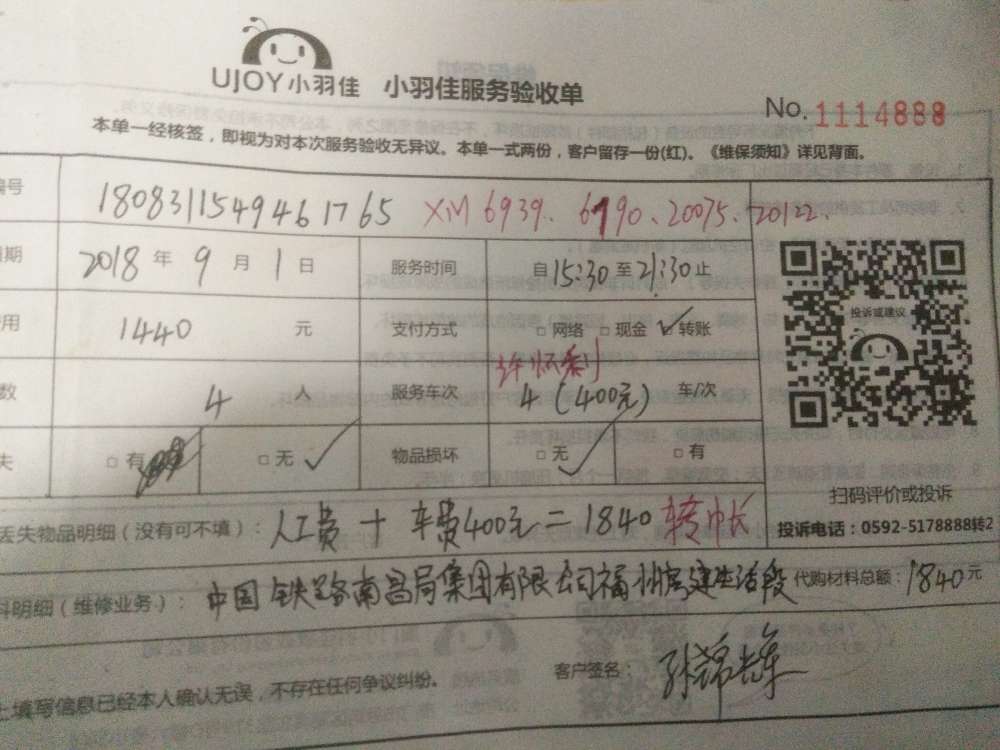 UJOY小羽佳 小羽佳服务验收单
No. 1114888
本单一经核签，即视为对本次服务验收无异议。本单一式两份，客户留存一份(红)。《维保须知》详见背面。
编号 1808311549461765 XM 6939. 6190. 20075. 20122.
日期 2018 年 9 月 1 日 服务时间 自 15:30 至 21:30 止
费用 1440 元 支付方式 □ 网络 □ 现金 ☑ 转账
数 4 人 服务车次 4 (400元) 车/次
失 □ 有 □ 无 ✓ 物品损坏 □ 无 ✓ □ 有
投诉或建议
扫码评价或投诉
投诉电话：0592-5178888转2
丢失物品明细（没有可不填）：人工费 + 车费400元 = 1840
料明细（维修业务）：中国铁路南昌局集团有限公司福州房建生活段 代购材料总额：1840元
上填写信息已经本人确认无误，不存在任何争议纠纷。
客户签名：